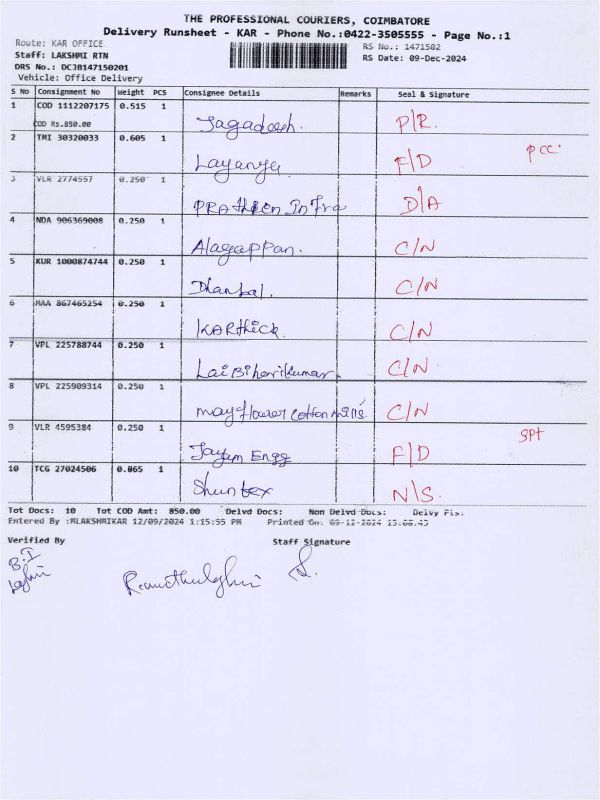 THE PROFESSIONAL COURIERS, COIMBATORE
Delivery Runsheet - KAR - Phone No.:0422-3505555 - Page No.:1
Route: KAR OFFICE
RS No.: 1471502
Staff: LAKSHMI RTN
RS Date: 09-Dec-2024
DRS No.: DCJB147150201
Vehicle: Office Delivery
S No Consignment No Weight PCS Consignee Details Remarks Seal & Signature
1 COD 1112207175 0.515 1
COD Rs.850.00 Jagadesh. P/R.
2 TMI 30320033 0.605 1
Layanya F/D pcc.
3 VLR 2774557 0.250 1
Infra D/A
4 NDA 906369008 0.250 1
Alagappan. C/N
5 KUR 1000874744 0.250 1
Dhanbal. C/N
6 MAA 867465254 0.250 1
KARthick C/N
7 VPL 225788744 0.250 1
Lal Biharikumar C/N
8 VPL 225909314 0.250 1
may flower cotton mills. C/N
9 VLR 4595384 0.250 1
Jayem Engg F/D SPt
10 TCG 27024506 0.865 1
Shuntex N/S.
Tot Docs: 10 Tot COD Amt: 850.00 Delvd Docs: Non Delvd Docs: Delvy Prs.
Entered By :MLAKSHMIKAR 12/09/2024 1:15:55 PM Printed On: 09-12-2024 13.08.43
Verified By Staff Signature